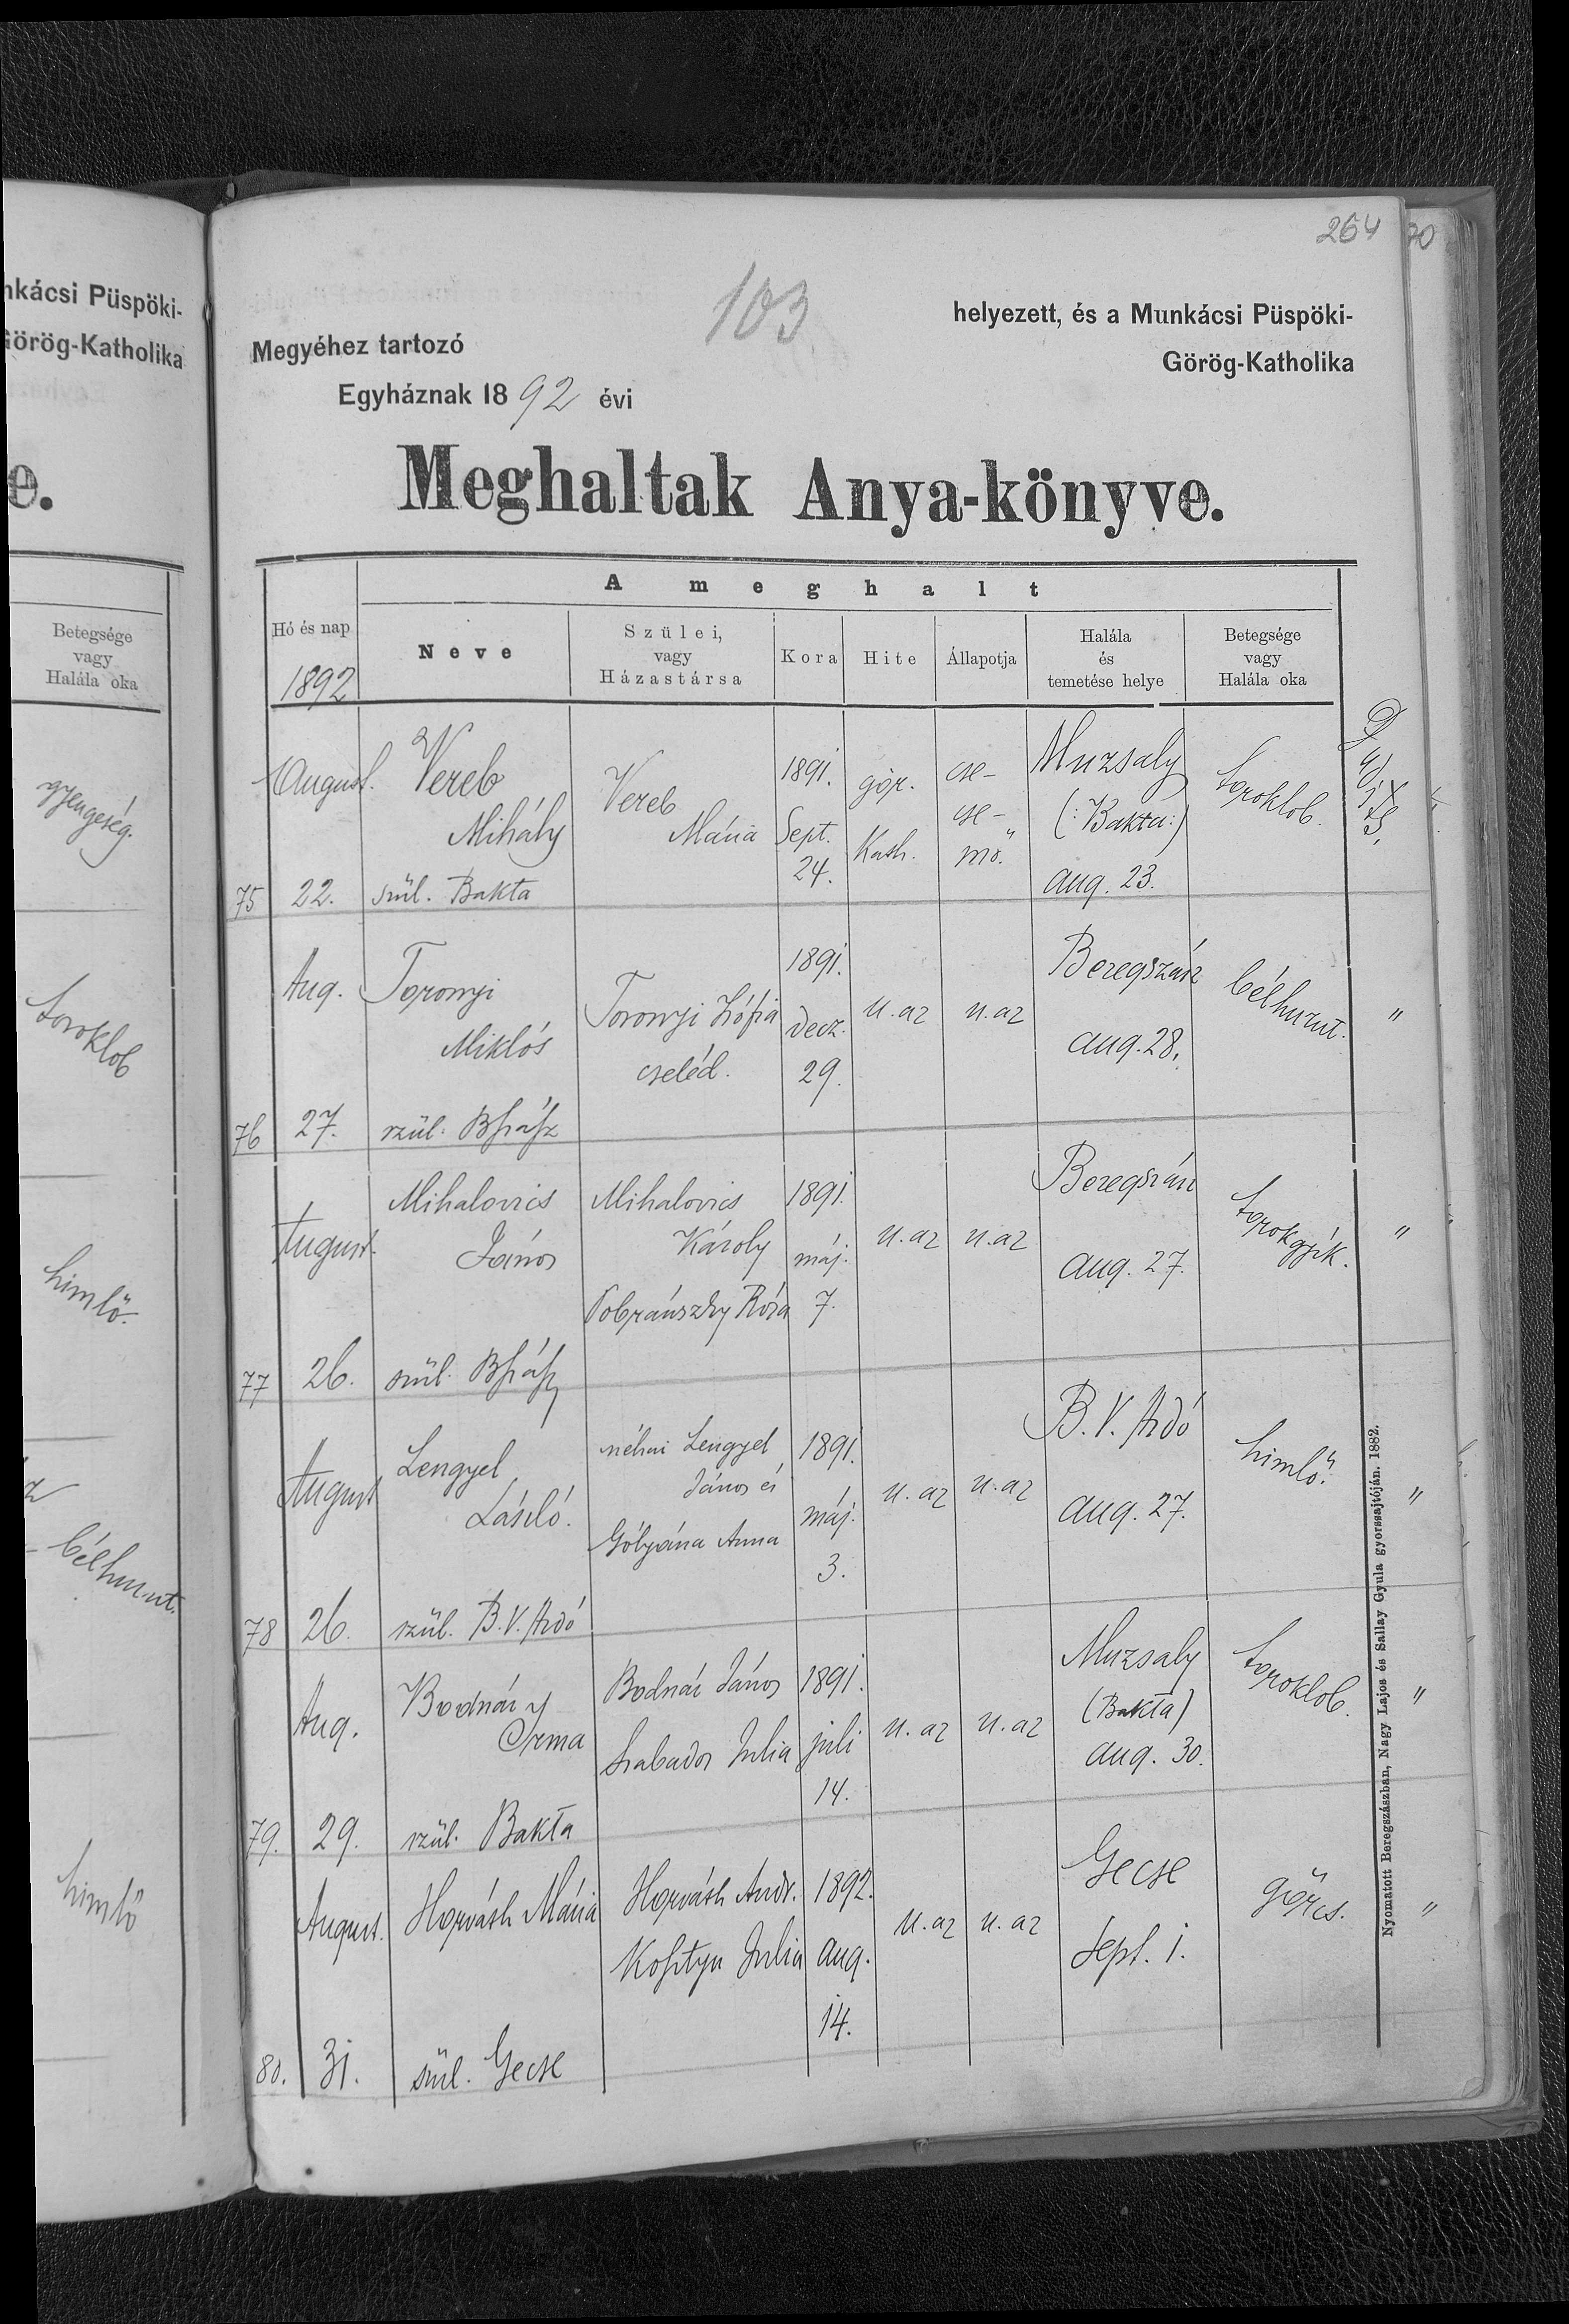 264
70
103
nkácsi Püspöki-
Görög-Katholika
e.
Betegsége
vagy
Halála oka
gyengeség.
toroklob
himlő.
bélhurut.
himlő
helyezett, és a Munkácsi Püspöki-
Megyéhez tartozó
Görög-Katholika
Egyháznak 1892 évi
Meghaltak Anya-könyve.
A meghalt
Hó és nap
1892
Neve
Szülei,
vagy
Házastársa
Kora
Hite
Állapotja
Halála
és
temetése helye
Betegsége
vagy
Halála oka
75
August.
22.
Vereb
Mihály
szül. Bakta
Vereb
Mária
1891.
Sept.
24.
gör.
Kath.
cse-
cse-
mő.
Muzsaly
(:Bakta:)
aug. 23.
toroklob.
76
Aug.
27.
Toronyi
Miklós
szül. Bszász
Toronyi Zsófia
cseléd.
1891.
decz.
29.
u.az
u.az
Beregszász
aug. 28.
bélhurut.
"
77
August.
26.
Mihalovics
János
szül. Bszász
Mihalovics
Károly
Róza
1891.
máj.
7.
u.az
u.az
Beregszász
aug. 27.
torokgyík.
"
78
August
26.
Lengyel
László.
szül. B.V. Ardó
néhai Lengyel
János és
Anna
1891.
máj.
3.
u.az
u.az
B.V. Ardó
aug. 27.
himlő.
"
79.
Aug.
29.
Bodnár
Irma
szül. Bakta
Bodnár János
Szabados Julia
1891.
juli
14.
u.az
u.az
Muzsaly
(Bakta)
aug. 30.
toroklob.
"
80.
August.
31.
Horváth Mária
szül. Gecse
Horváth Andr.
Kosztyu Julia
1892.
aug.
14.
u.az
u.az
Gecse
sept. 1.
görcs.
"
Nyomatott Beregszászban, Nagy Lajos és Sallay Gyula gyorssajtóján. 1882.